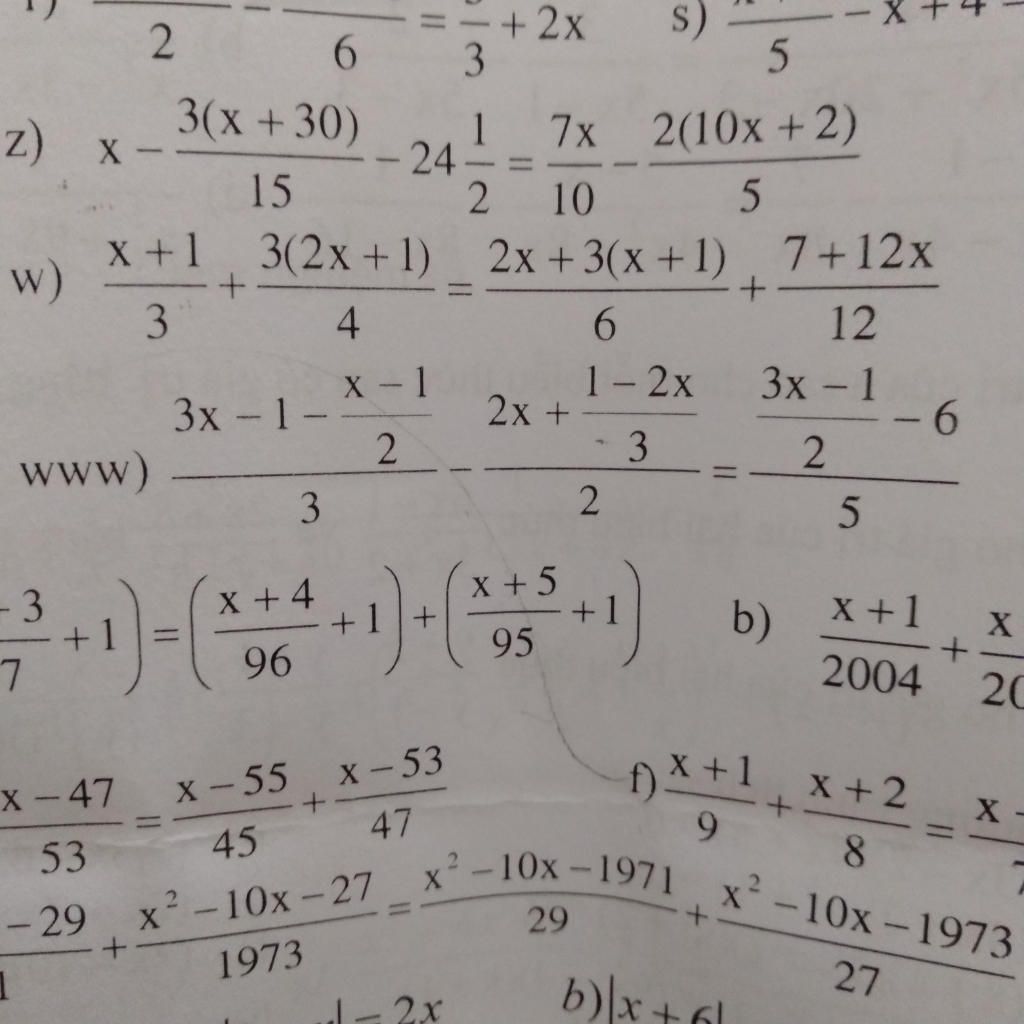 2 - 6 = 3 + 2x s) 5 - x + 4
z) x - \frac{3(x + 30)}{15} - 24\frac{1}{2} = \frac{7x}{10} - \frac{2(10x + 2)}{5}
w) \frac{x + 1}{3} + \frac{3(2x + 1)}{4} = \frac{2x + 3(x + 1)}{6} + \frac{7 + 12x}{12}
www) \frac{3x - 1 - \frac{x - 1}{2}}{3} - \frac{2x + \frac{1 - 2x}{3}}{2} = \frac{\frac{3x - 1}{2} - 6}{5}
\frac{- 3}{7} + 1) = (\frac{x + 4}{96} + 1) + (\frac{x + 5}{95} + 1) b) \frac{x + 1}{2004} + \frac{x}{20}
\frac{x - 47}{53} = \frac{x - 55}{45} + \frac{x - 53}{47} f) \frac{x + 1}{9} + \frac{x + 2}{8} = \frac{x -}{7}
\frac{- 29}{1} + \frac{x^2 - 10x - 27}{1973} = \frac{x^2 - 10x - 1971}{29} + \frac{x^2 - 10x - 1973}{27}
| = 2x b) |x + 6|